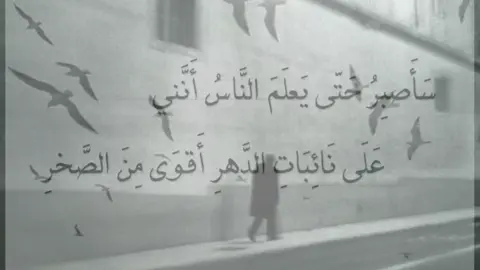 سَأَصبِرُ حَتّى يَعلَمَ النَّاسُ أَنَّني
عَلَى نَائِبَاتِ الدَّهرِ أَقوَى مِنَ الصَّخرِ